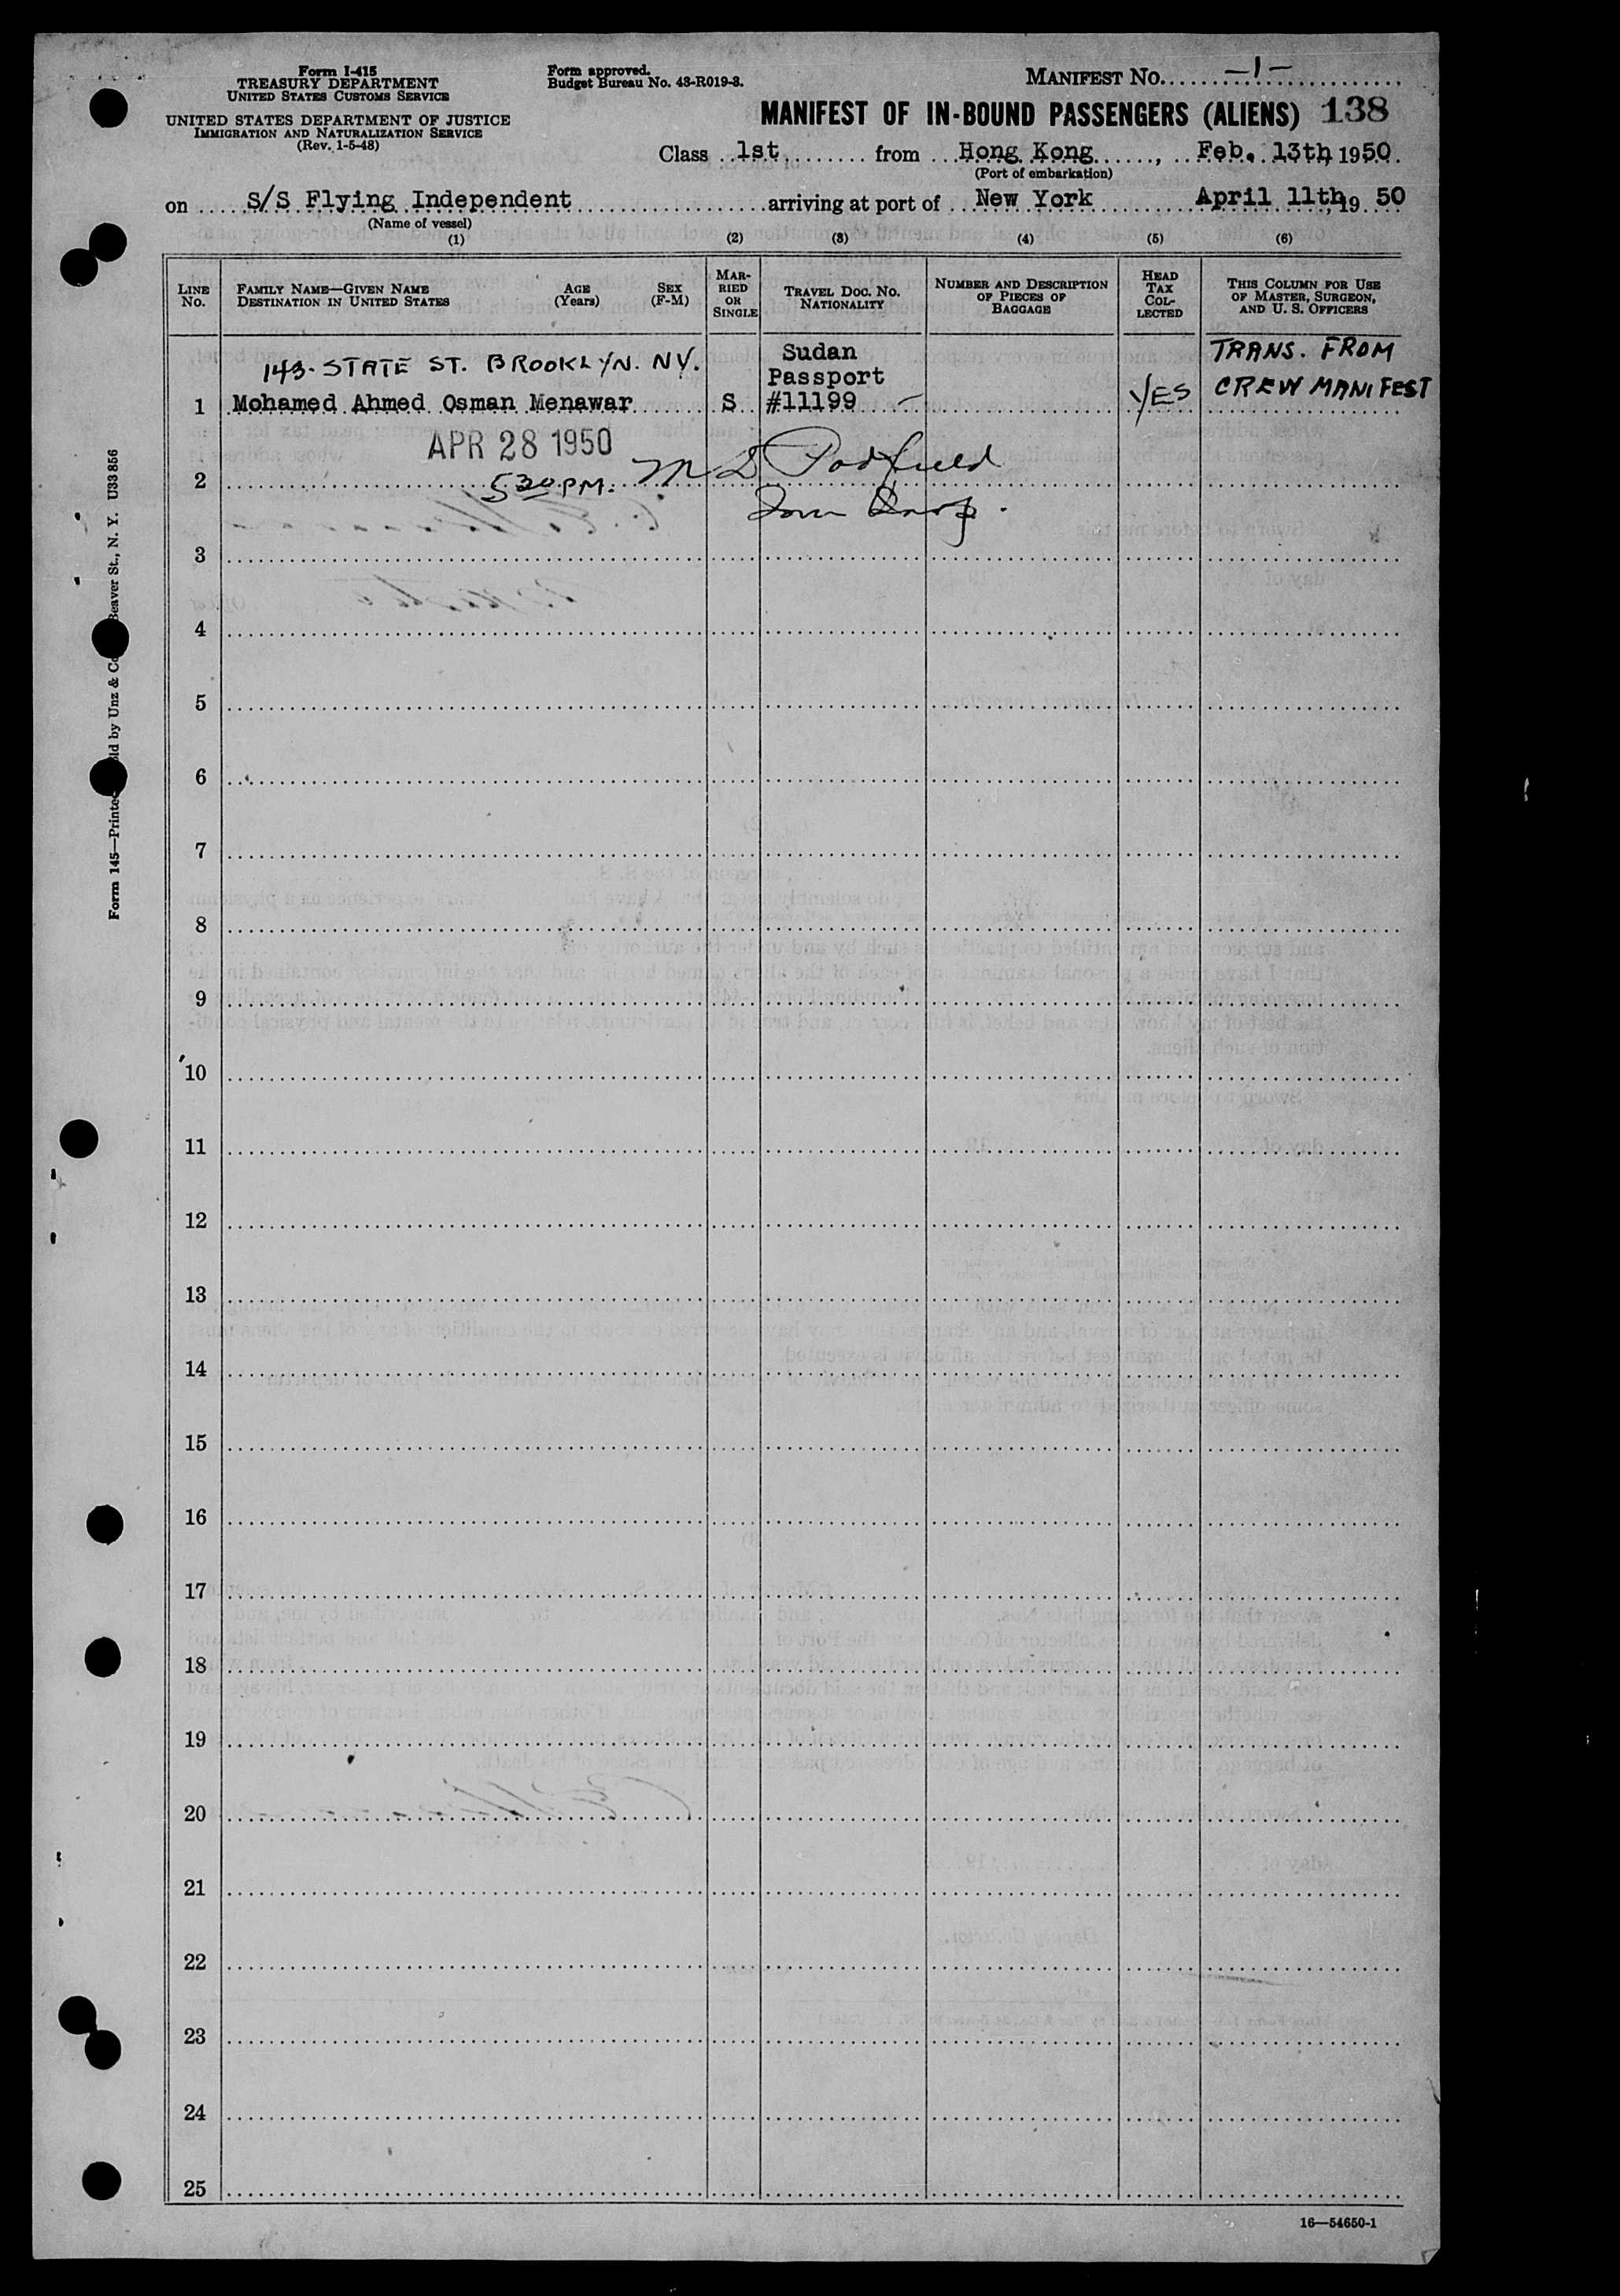 Form I-415
TREASURY DEPARTMENT
UNITED STATES CUSTOMS SERVICE
UNITED STATES DEPARTMENT OF JUSTICE
IMMIGRATION AND NATURALIZATION SERVICE
(Rev. 1-5-48)
Form approved.
Budget Bureau No. 43-R019-3.
MANIFEST No. -1-
MANIFEST OF IN-BOUND PASSENGERS (ALIENS) 138
Class 1st from Hong Kong, Feb. 13th, 1950.
(Port of embarkation)
on S/S Flying Independent arriving at port of New York April 11th, 19 50
(Name of vessel)
(1) (2) (3) (4) (5) (6)
LINE No.
FAMILY NAME—GIVEN NAME
DESTINATION IN UNITED STATES
AGE (Years)
SEX (F-M)
MARRIED OR SINGLE
TRAVEL DOC. NO.
NATIONALITY
NUMBER AND DESCRIPTION OF PIECES OF BAGGAGE
HEAD TAX COLLECTED
THIS COLUMN FOR USE OF MASTER, SURGEON, AND U. S. OFFICERS
143- STATE ST. BROOKLYN. NY. Sudan TRANS. FROM
Passport CREW MANIFEST
1 Mohamed Ahmed Osman Menawar S #11199 YES
APR 28 1950
2 5 30 PM. M D Padfield
Imm Insp.
3
4
5
6
7
8
9
10
11
12
13
14
15
16
17
18
19
20
21
22
23
24
25
16—54650-1
Form 145—Printed
ld by Unz & Co
Beaver St., N. Y. U33856